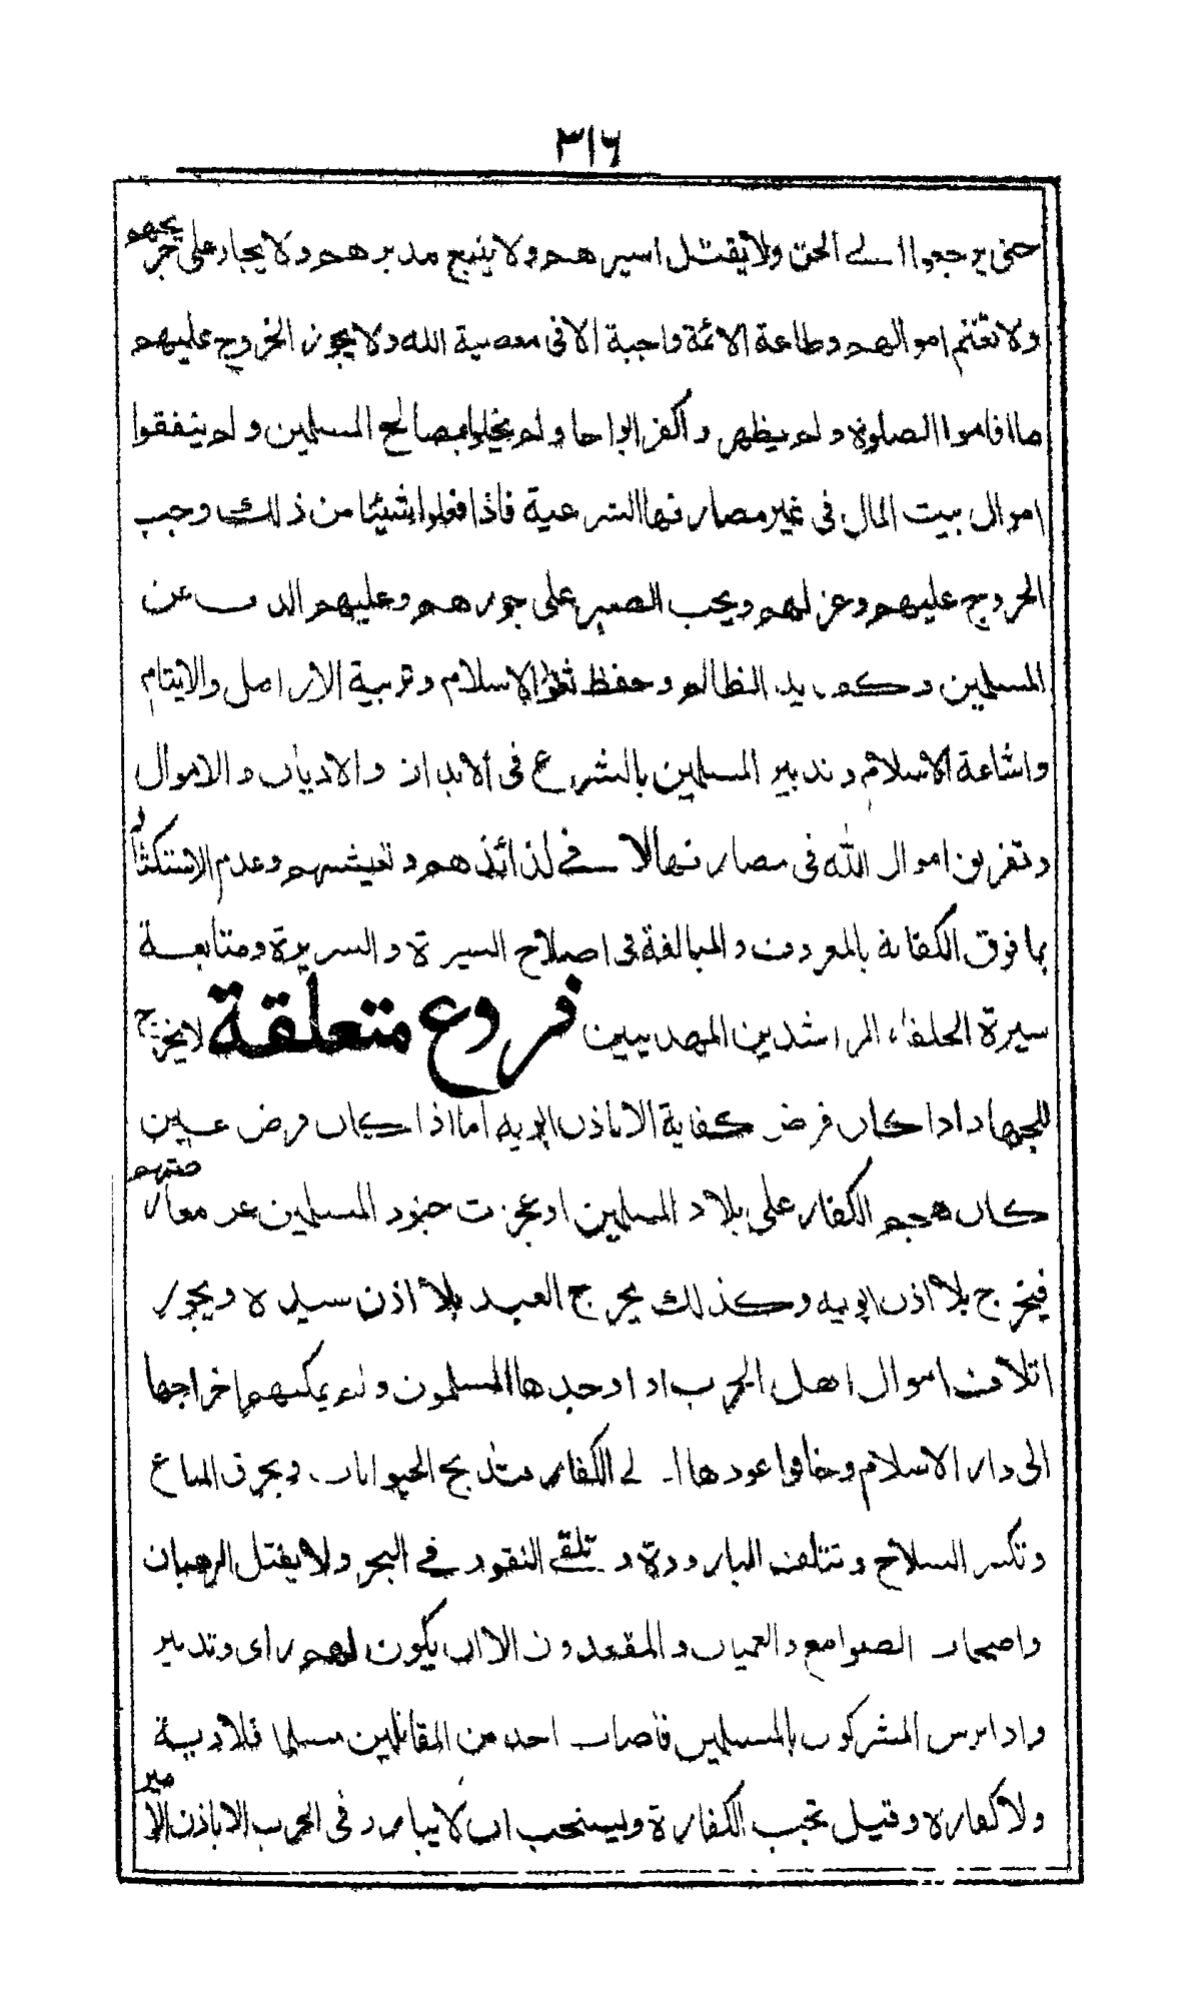 ٣١٦
حتى يرجعوا الى الحق ولا يقتل اسيرهم ولا يتبع مدبرهم ولا يجاز على جريحهم
ولا تغنم اموالهم وطاعة الائمة واجبة الا فى معصية الله ولا يجوز الخروج عليهم
ما اقاموا الصلوة ولم يظهروا كفرا بواحا ولم يخلوا بمصالح المسلمين ولم ينفقوا
اموال بيت المال فى غير مصارفها الشرعية فاذا فعلوا شيئا من ذلك وجب
الخروج عليهم وعزلهم ويجب الصبر على جورهم وعليهم الذب عن
المسلمين وكف يد الظالم وحفظ ثغور الاسلام وتربية الارامل والايتام
واشاعة الاسلام وتدبير المسلمين بالشرع فى الابدان والاديان والاموال
وتفريق اموال الله فى مصارفها لا فى لذائذهم وتعيشهم وعدم الاستكثار
بما فوق الكفاية بالمعروف والمبالغة فى اصلاح السيرة والسريرة ومتابعة
سيرة الخلفاء الراشدين المهديين فروع متعلقة لا يخرج
للجهاد اذا كان فرض كفاية الا باذن ابويه اما اذا كان فرض عين
كان هجم الكفار على بلاد المسلمين او عجزت جنود المسلمين عن معارضتهم
فيخرج بلا اذن ابويه وكذلك يخرج العبد بلا اذن سيده ويجوز
اتلاف اموال اهل الحرب اذا وجدها المسلمون ولم يمكنهم اخراجها
الى دار الاسلام وخافوا عودها الى الكفار فتذبح الحيوانات ويحرق المتاع
وتكسر السلاح وتتلف البارودة وتلقى النقود فى البحر ولا يقتل الرهبان
واصحاب الصوامع والعميان والمقعدون الا ان يكون لهم راى وتدبير
واذا ترس المشركون بالمسلمين فاصاب احد من المقاتلين مسلما فلا دية
ولا كفارة وقيل تجب الكفارة ويستحب ان لا يبارز فى الحرب الا باذن الامير